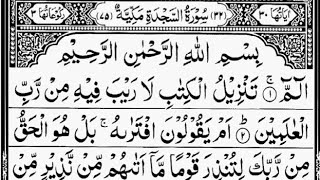 اٰیَاتُهَا ٣٠ (٣٢) سُوْرَةُ السَّجْدَةِ مَكِّیَّةٌ (٧٥) رُكُوْعَاتُهَا ٣
بِسْمِ اللّٰهِ الرَّحْمٰنِ الرَّحِیْمِ
الٓمّٓ ۚ ١ تَنْزِیْلُ الْكِتٰبِ لَا رَیْبَ فِیْهِ مِنْ رَّبِّ
الْعٰلَمِیْنَ ؕ ٢ اَمْ یَقُوْلُوْنَ افْتَرٰىهُ ۚ بَلْ هُوَ الْحَقُّ
مِنْ رَّبِّكَ لِتُنْذِرَ قَوْمًا مَّاۤ اَتٰىهُمْ مِّنْ نَّذِیْرٍ مِّنْ